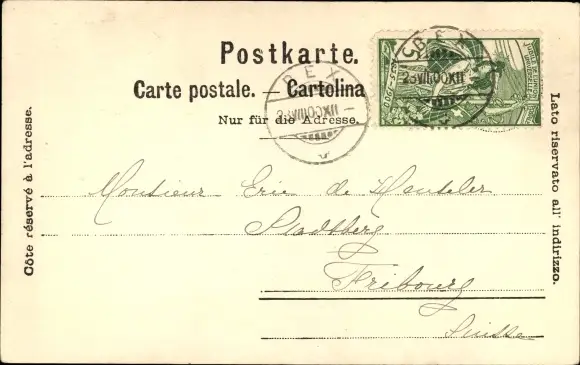 Postkarte.
Carte postale. — Cartolina
Nur für die Adresse.
Côté réservé à l'adresse.
Lato riservato all' indirizzo.
BEX
23.VIII.00XII
BEX
23.VIII.00XII
JUBILÉ DE L'UNION
POSTALE UNIVERSELLE
Monsieur Eric de Haut
Stadtberg
Fribourg
Suisse